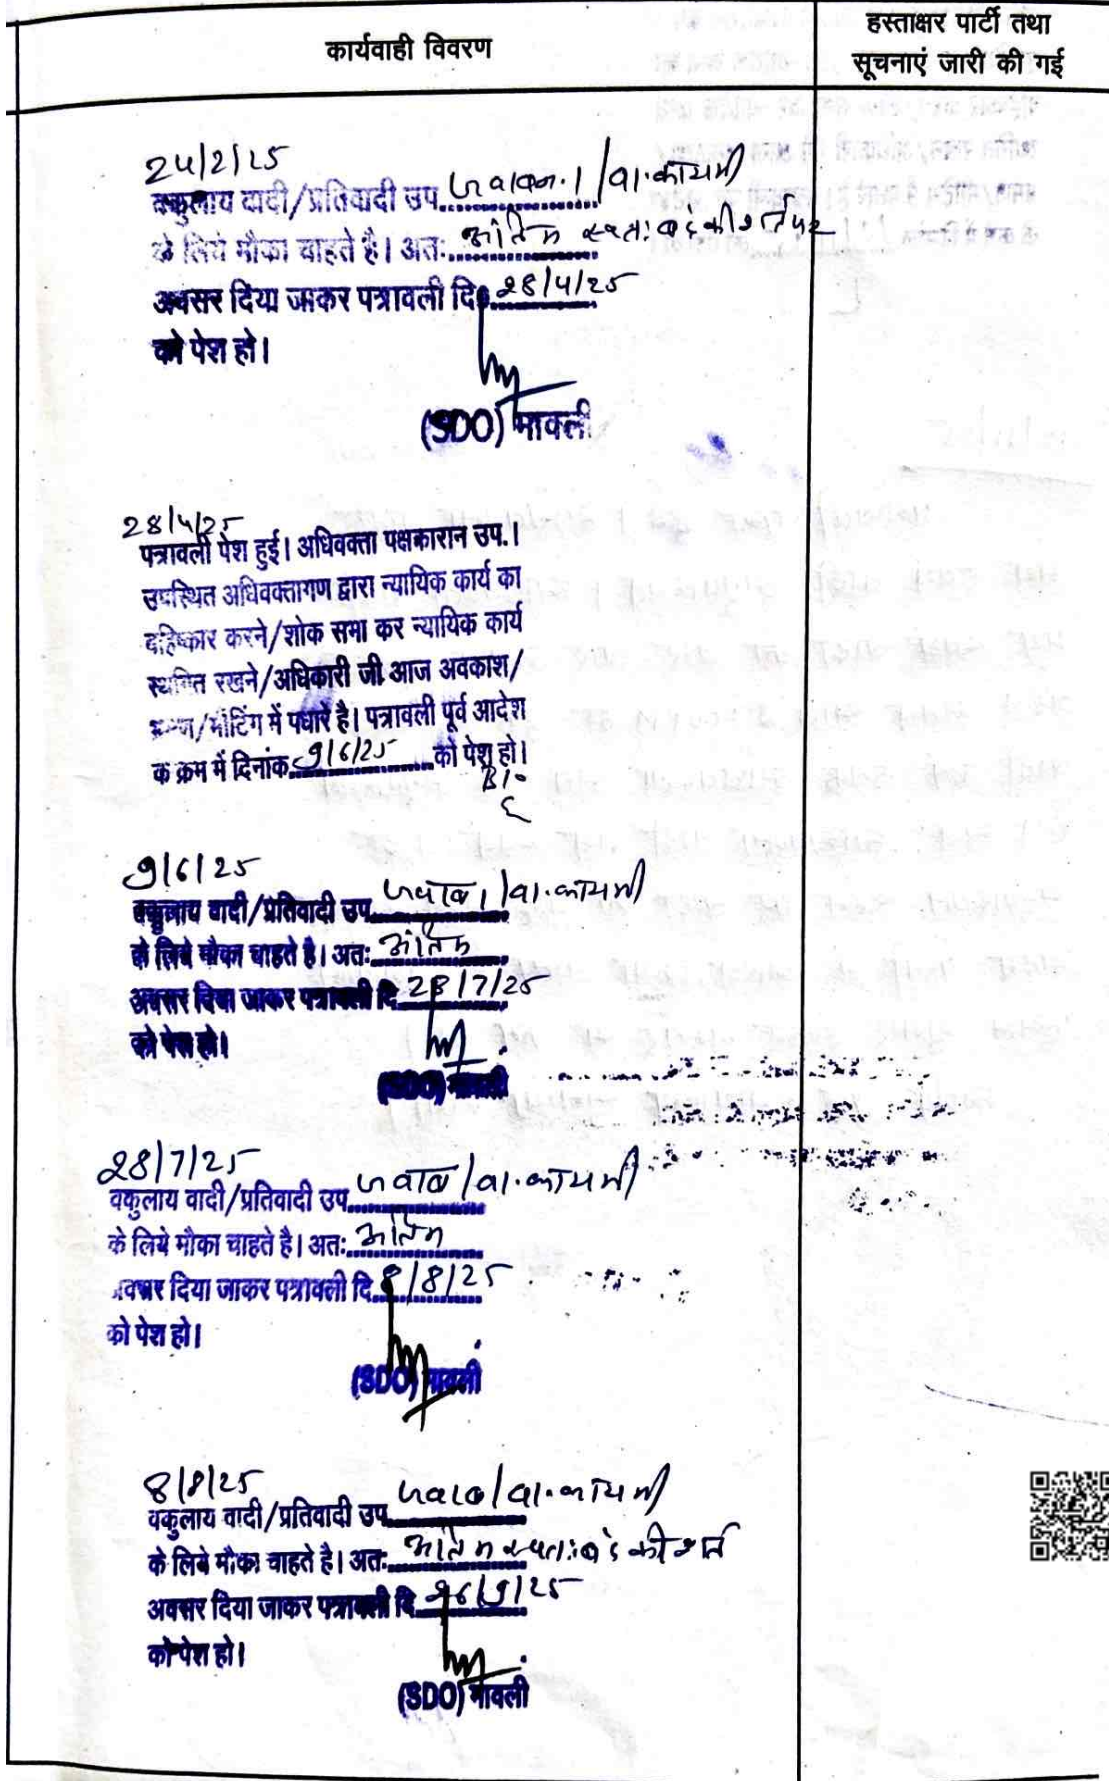 कार्यवाही विवरण
हस्ताक्षर पार्टी तथा
सूचनाएं जारी की गई
24/2/25
वकुलाय वादी/प्रतिवादी उप. /वा.कायमी
के लिये मौका चाहते है। अतः अंतिम स्वतः बंद की शर्त पर
अवसर दिया जाकर पत्रावली दि. 28/4/25
को पेश हो।
(SDO) मावली
28/4/25
पत्रावली पेश हुई। अधिवक्ता पक्षकारान उप.।
उपस्थित अधिवक्तागण द्वारा न्यायिक कार्य का
बहिष्कार करने/शोक सभा कर न्यायिक कार्य
स्थगित रखने/अधिकारी जी आज अवकाश/
भ्रमण/मीटिंग में पधारे है। पत्रावली पूर्व आदेश
के क्रम में दिनांक 9/6/25 को पेश हो।
9/6/25
वकुलाय वादी/प्रतिवादी उप. जवाब/वा.कायमी
के लिये मौका चाहते है। अतः अंतिम
अवसर दिया जाकर पत्रावली दि. 28/7/25
को पेश हो।
(SDO) मावली
28/7/25
वकुलाय वादी/प्रतिवादी उप. जवाब/वा.कायमी
के लिये मौका चाहते है। अतः अंतिम
अवसर दिया जाकर पत्रावली दि. 8/8/25
को पेश हो।
(SDO) मावली
8/8/25
वकुलाय वादी/प्रतिवादी उप. जवाब/वा.कायमी
के लिये मौका चाहते है। अतः अंतिम स्वतः बंद की शर्त
अवसर दिया जाकर पत्रावली दि. 26/9/25
को पेश हो।
(SDO) मावली